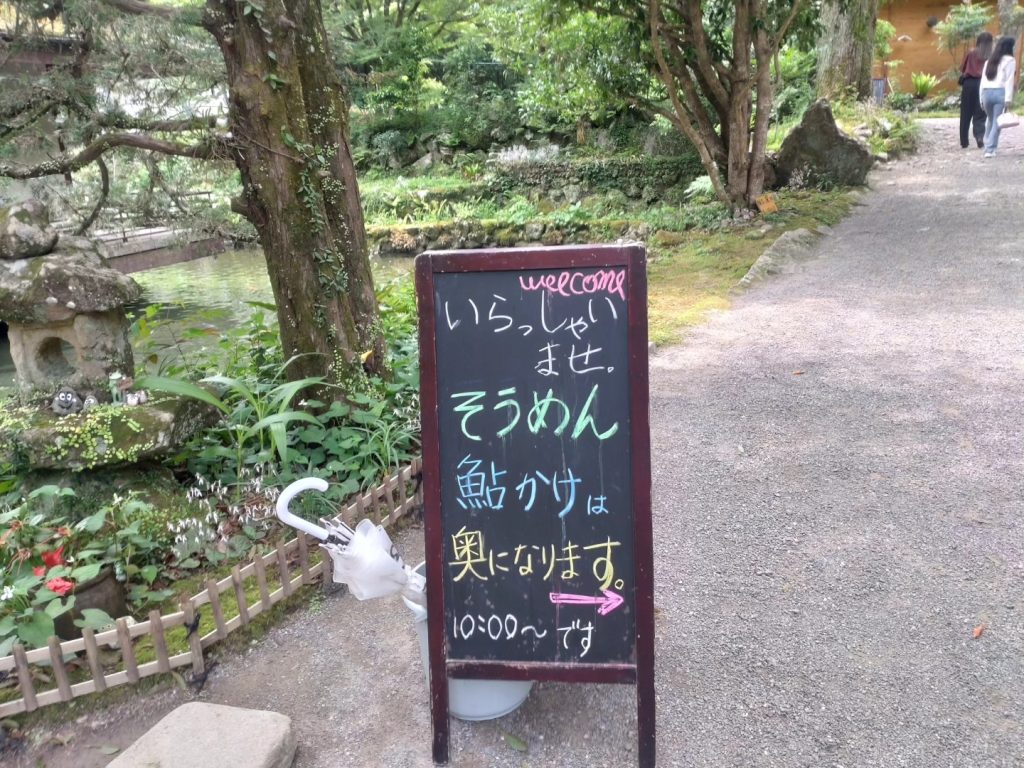 welcome
いらっしゃい
ませ。
そうめん
鮎かけは
奥になります。
10:00〜です